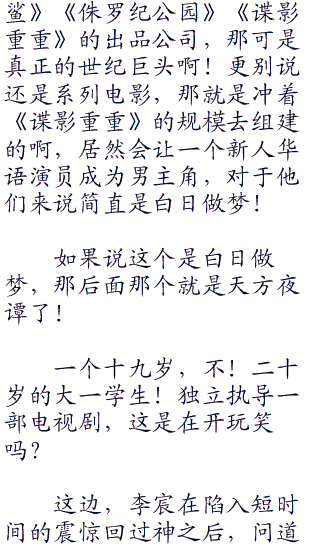 鲨》《侏罗纪公园》《谍影
重重》的出品公司，那可是
真正的世纪巨头啊！更别说
还是系列电影，那就是冲着
《谍影重重》的规模去组建
的啊，居然会让一个新人华
语演员成为男主角，对于他
们来说简直是白日做梦！
如果说这个是白日做
梦，那后面那个就是天方夜
谭了！
一个十九岁，不！二十
岁的大一学生！独立执导一
部电视剧，这是在开玩笑
吗？
这边，李宸在陷入短时
间的震惊回过神之后，问道